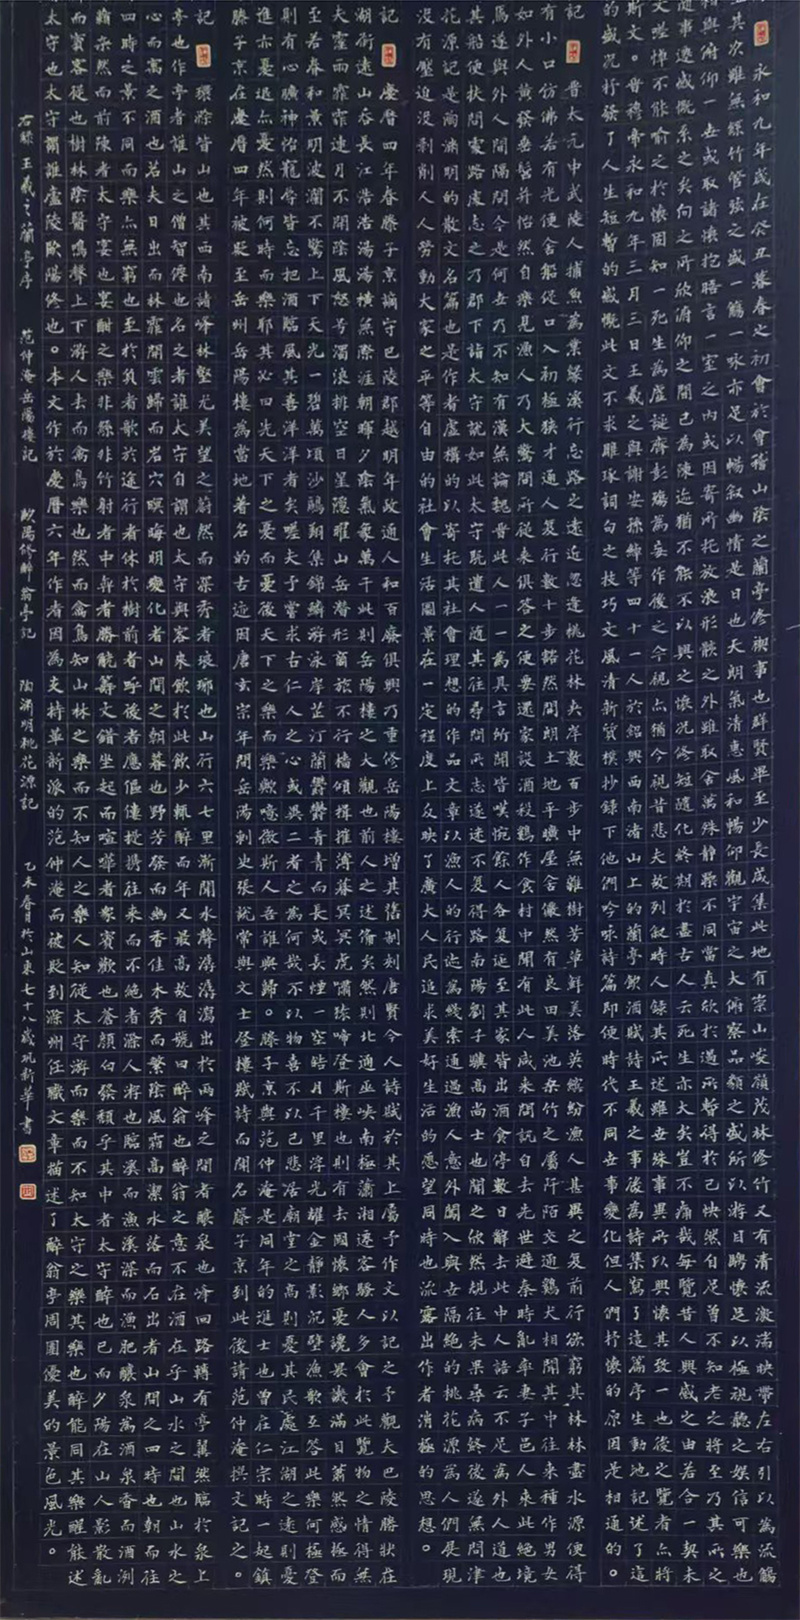 永和九年歲在癸丑暮春之初會於會稽山陰之蘭亭修禊事也群賢畢至少長咸集此地有崇山峻嶺茂林修竹又有清流激湍映帶左右引以為流觴
其次雖無絲竹管弦之盛一觴一咏亦足以暢敘幽情是日也天朗氣清惠風和暢仰觀宇宙之大俯察品類之盛所以游目騁懷足以極視聽之娛信可樂也
相與俯仰一世或取諸懷抱晤言一室之內或因寄所托放浪形骸之外雖取舍萬殊靜躁不同當其欣於所遇暫得於己快然自足曾不知老之將至乃其所之
隨事遷感慨系之矣向之所欣俯仰之間已為陳迹猶不能不以興之懷況修短隨化終期於盡古人云死生亦大矣豈不痛哉每覽昔人興感之由若合一契未
文嗟悼不能喻之於懷固知一死生為虛誕齊彭殤為妄作後之今視亦猶今視昔悲夫故列敘時人錄其所述雖世殊事異所以興懷其致一也後之覽者亦將
斯文。晉穆帝永和九年三月三日王羲之與謝安孫綽等四十一人於紹興西南渚山上的蘭亭飲酒賦詩王羲之事後為詩集寫了這篇序生動地記述了這
的盛況抒發了人生短暫的感慨此文不求雕琢詞句之技巧文風清新質樸抄錄下他們吟咏詩篇即使時代不同世事變化但人們抒懷的原因是相通的。
記 晉太元中武陵人捕魚為業緣溪行忘路之遠近忽逢桃花林夾岸數百步中無雜樹芳草鮮美落英繽紛漁人甚異之復前行欲窮其林林盡水源便得
有小口仿佛若有光便舍船從口入初極狹才通人復行數十步豁然開朗土地平曠屋舍儼然有良田美池桑竹之屬阡陌交通鷄犬相聞其中往來種作男女
如外人黃發垂髫并怡然自樂見漁人乃大驚問所從來俱答之便要還家設酒殺鷄作食村中聞有此人咸來問訊自云先世避秦時亂率妻子邑人來此絕境
焉遂與外人間隔問今是何世乃不知有漢無論魏晉此人一一為具言所聞皆嘆惋餘人各復延至其家皆出酒食停數日辭去此中人語云不足為外人
其船便扶向路處處志之乃郡下詣太守說如此太守既遣人隨其往尋向所志遂迷不復得路南陽劉子驥高尚士也聞之欣然規往未果尋病終後遂無問津
花源記是陶淵明的散文名篇也是作者虛構的以寄托其社會理想的作品文章以漁人的行迹為綫索通過漁人意外闖入與世隔絕的桃花源為人們展現
沒有壓迫沒剥削人人勞動大家之平等自由的社會生活圖景在一定程度上反映了廣大人民追求美好生活的愿望同時也流露出作者消極的思想。
記 慶曆四年春滕子京謫守巴陵郡越明年政通人和百廢俱興乃重修岳陽樓增其舊制刻唐賢今人詩賦於其上屬予作文以記之予觀夫巴陵勝狀在
湖銜遠山吞長江浩浩湯湯橫無際涯朝暉夕陰氣象萬千此則岳陽樓之大觀也前人之述備矣然則北通巫峽南極瀟湘遷客騷人多會於此覽物之情得無
夫霪雨霏霏連月不開陰風怒號濁浪排空日星隱曜山岳潛形商旅不行檣傾楫摧薄暮冥冥虎嘯猿啼登斯樓也則有去國懷鄉憂讒畏譏滿目蕭然感極而
至若春和景明波瀾不驚上下天光一碧萬頃沙鷗翔集錦鱗游泳岸芷汀蘭鬱鬱青青而長或長煙一空皓月千里浮光耀金靜影沉璧漁歌互答此樂何極登
則有心曠神怡寵辱皆忘把酒臨風其喜洋洋者矣嗟夫予嘗求古仁人之心或異二者之為何哉不以物喜不以己悲居廟堂之高則憂其民處江湖之遠則憂
進亦憂退亦憂然則何時而樂耶其必曰先天下之憂而憂後天下之樂而樂歟噫微斯人吾誰與歸。滕子京與范仲淹是同年的進士也曾在仁宗時一起鎮
滕子京在慶曆四年被貶至岳州岳陽樓為當地著名的古迹因唐玄宗年間岳陽刺史張說常與文士登樓賦詩而聞名滕子京到此後請范仲淹撰文記之。
記 環滁皆山也其西南諸峰林壑尤美望之蔚然而深秀者琅琊也山行六七里漸聞水聲潺潺瀉出於兩峰之間者釀泉也峰回路轉有亭翼然臨於泉上
亭也作亭者誰山之僧智僊也名之者誰太守自謂也太守與客來飲於此飲少輒醉而年又最高故自號曰醉翁也醉翁之意不在酒在乎山水之間也山水之
心而寓之酒也若夫日出而林霏開雲歸而岩穴暝晦明變化者山間之朝暮也野芳發而幽香佳木秀而繁陰風霜高潔水落而石出者山間之四時也朝而往
四時之景不同而樂亦無窮也至於負者歌於途行者休於樹前者呼後者應傴僂提攜往來而不絕者滁人游也臨溪而漁溪深而漁肥釀泉為酒泉香而酒洌
雜然而前陳者太守宴也宴酣之樂非絲非竹射者中弈者勝觥籌交錯坐起而喧嘩者衆賓歡也蒼顏白發頹乎其中者太守醉也已而夕陽在山人影散亂
而賓客從也樹林陰翳鳴聲上下游人去而禽鳥樂也然而禽鳥知山林之樂而不知人之樂人知從太守游而樂而不知太守之樂其樂也醉能同其樂醒能述
太守也太守謂誰廬陵歐陽修也。本文作於慶曆六年作者因為支持革新派的范仲淹而被貶到滁州任職文章描述了醉翁亭周圍優美的景色風光。
右錄王羲之蘭亭序 范仲淹岳陽樓記 歐陽修醉翁亭記 陶淵明桃花源記 乙未春月於山東七十八歲巩新華書